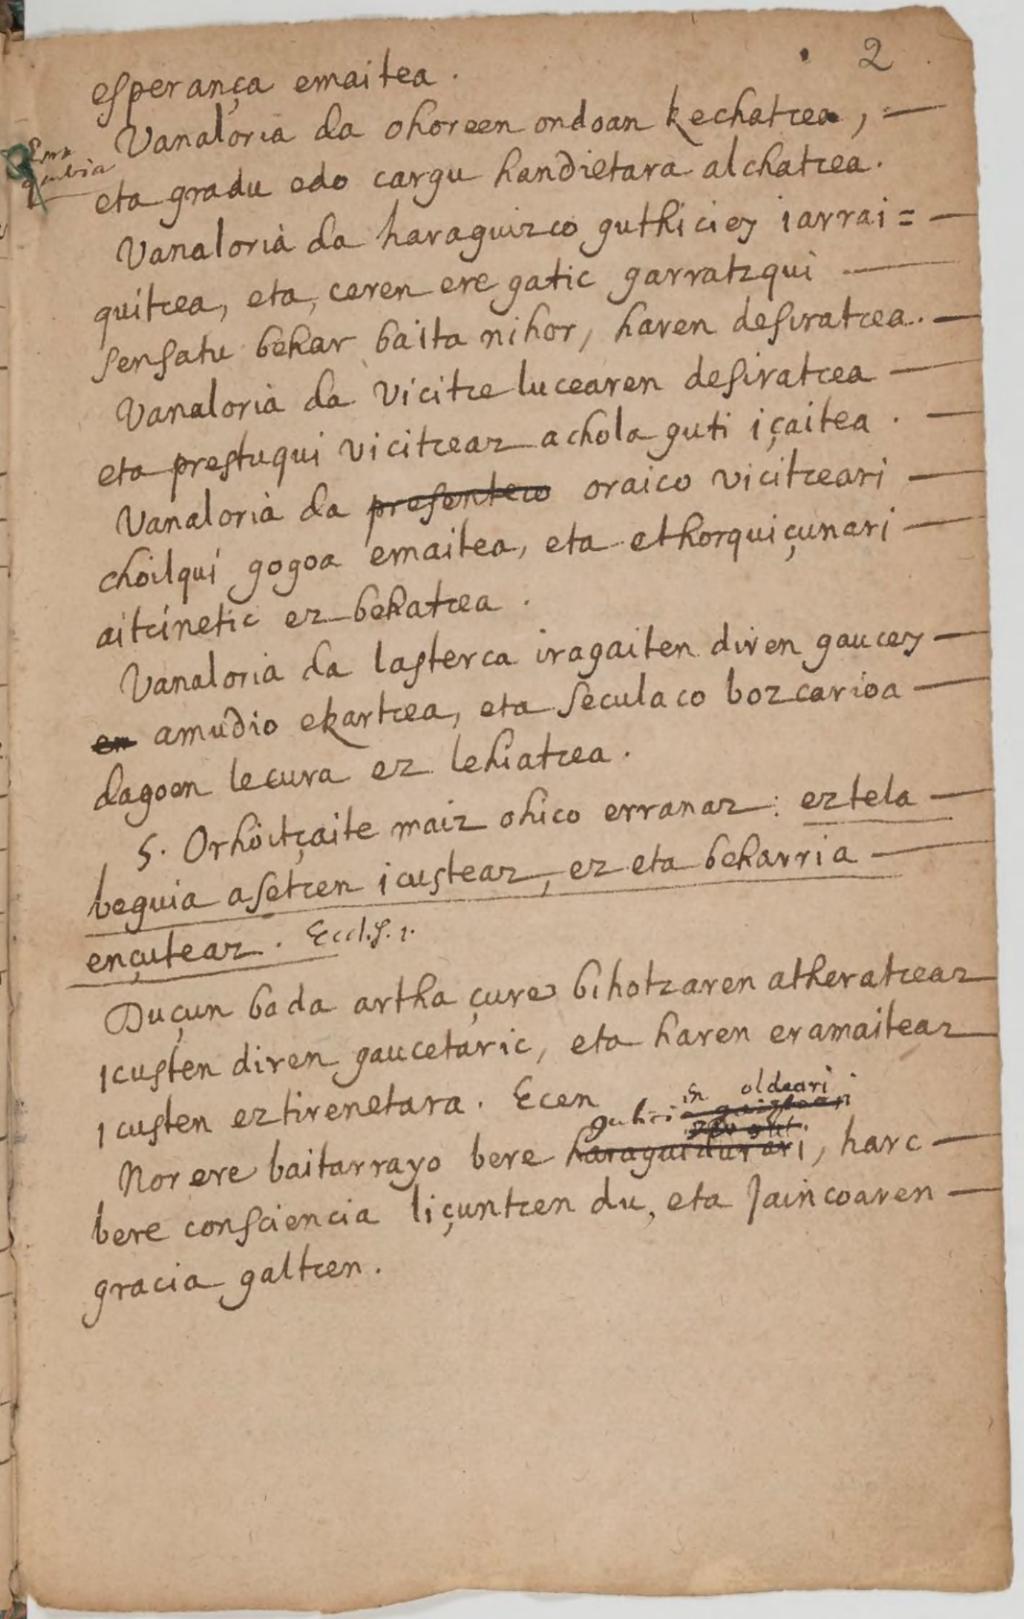 2
esperança emaitea.
Vanaloria da ohoreen ondoan kechatcea, —
eta gradu edo cargu handietara alchatcea.
Vanaloria da haraguizco guthiciey iarrai= —
quitcea, eta, ceren ere gatic garratzqui —
sensatu behar baita nihor, haren desiratcea. —
Vanaloria da vicitce lucearen desiratcea —
eta prestuqui vicitceaz achola guti içaitea. —
Vanaloria da presenteco oraico vicitceari —
choilqui gogoa emaitea, eta ethorquiçunari —
aitcinetic ez behatcea.
Vanaloria da lasterca iragaiten diren gaucey —
en amudio ekartcea, eta seculaco bozcarioa —
dagoen lecura ez lehiatcea.
5. Orhoitçaite maiz ohico erranaz: eztela —
beguia asetcen icusteaz, ez eta beharria —
ençuteaz. Eccl. 1.
Duçun bada artha çure bihotzaren atheratceaz
icusten diren gaucetaric, eta haren eramaiteaz
icusten eztirenetara. Ecen
oldeari
Nor ere baitarrayo bere haraguidurari, harc —
bere consciencia liçuntcen du, eta Jaincoaren —
gracia galtcen.